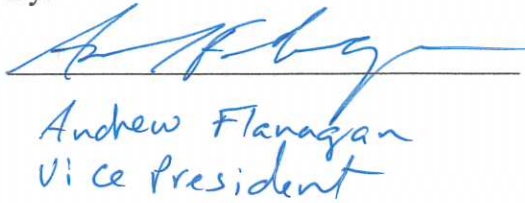 Andrew Flanagan
Vice President